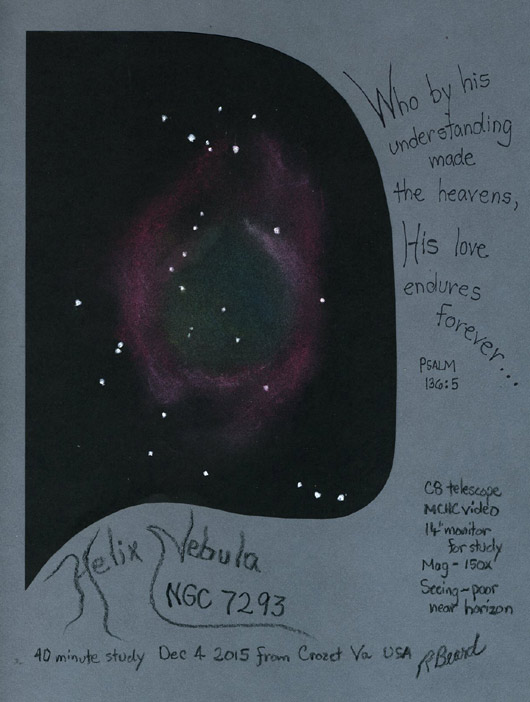 Who by his
understanding
made
the heavens,
His love
endures
forever...
PSALM
136:5
C8 telescope
MCHC video
14" monitor
for study
Mag - 150x
Seeing - poor
near horizon
Helix Nebula
NGC 7293
40 minute study Dec 4 2015 from Crozet Va USA
R Beard